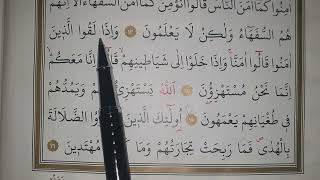 اٰمِنُوا كَمَٓا اٰمَنَ النَّاسُ قَالُٓوا اَنُؤْمِنُ كَمَٓا اٰمَنَ السُّفَهَٓاءُ اَلَٓا اِنَّهُمْ
هُمُ السُّفَهَٓاءُ وَلٰكِنْ لَا يَعْلَمُونَ ﴿١٣﴾ وَاِذَا لَقُوا الَّذ۪ينَ
اٰمَنُوا قَالُٓوا اٰمَنَّا وَاِذَا خَلَوْا اِلٰى شَيَاط۪ينِهِمْ قَالُٓوا اِنَّا مَعَكُمْ
اِنَّمَا نَحْنُ مُسْتَهْزِؤُ۫نَ ﴿١٤﴾ اَللّٰهُ يَسْتَهْزِئُ بِهِمْ وَيَمُدُّهُمْ
ف۪ي طُغْيَانِهِمْ يَعْمَهُونَ ﴿١٥﴾ اُو۬لٰٓئِكَ الَّذ۪ينَ اشْتَرَوُا الضَّلَالَةَ
بِالْهُدٰى فَمَا رَبِحَتْ تِجَارَتُهُمْ وَمَا مُهْتَد۪ينَ ﴿١٦﴾